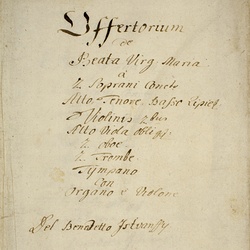 Offertorium
de
Beata Virg Maria
à
2 Soprani Conc:
Alto, Tenore, Basso
Violinis 2bus
Alto Viola oblig:
2 Oboe
2 Trombe
Tympano
Con
Organo e Violone
Del Benedetto Istvanffy